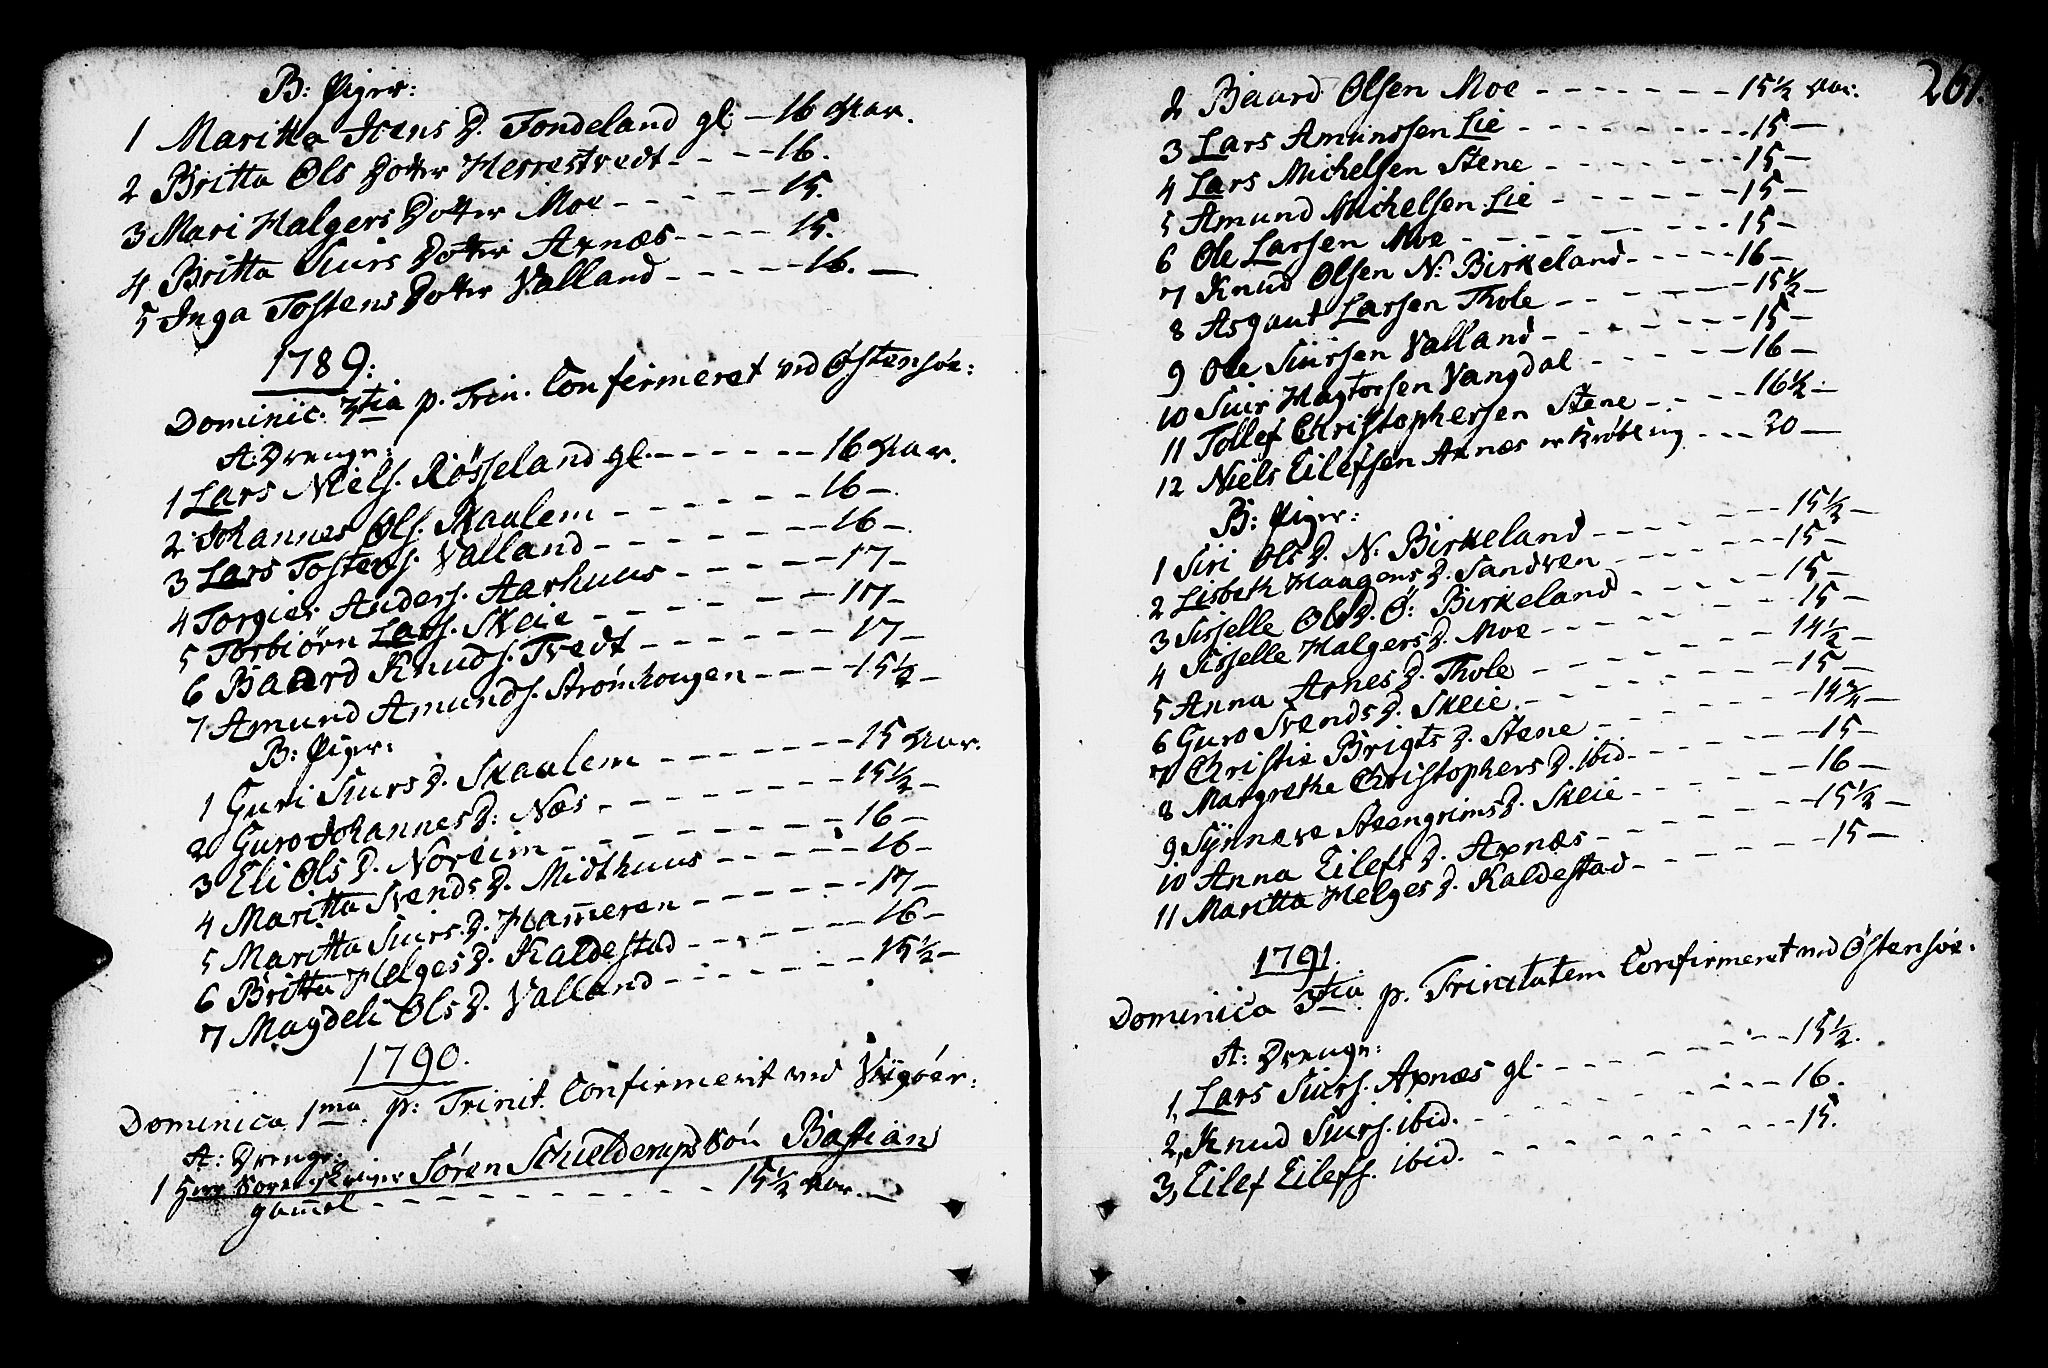 B: Piger:
1 Maritta Ivens D. Tondeland gl. — 16 Aar.
2 Britta Ols Dotter Herrestvedt - - - - 16.
3 Mari Halgers Dotter Moe - - - - - 15.
4 Britta Siurs Dotter Axnæs - - - - 15.
5 Inga Tostens Dotter Valland - - - - - 16. —
1789:
Dominic. 3tia p. Trin. Confirmeret ved Østensøe:
A: Drenge:
1 Lars Niels. Røsseland gl. - - - - - - 16 Aar.
2 Johannes Ols. Skaalem - - - - - - 16 —
3 Lars Tostens. Valland - - - - - - 16 —
4 Torgier Anders. Aarhuus - - - - - 17 —
5 Torbiörn Lars. Skeie - - - - - - 17 —
6 Baard Knuds. Tvedt - - - - - - 17 —
7 Amund Amunds. Strømhougen - - - - 15½ —
B: Piger:
1 Guri Siurs D. Skaalem - - - - - - 15 Aar.
2 Guro Johannes D: Næs - - - - - - - 15½ —
3 Eli Ols D. Noreim - - - - - - - 16 —
4 Maritta Svends D. Midthuus - - - - - 16 —
5 Maritta Siurs D. Ham̅eren - - - - - 17 —
6 Britta Helges D. Kaldestad - - - - - 16 —
7 Magdeli Ols D. Valland - - - - - - 15½ —
1790.
Dominica 1ma. p: Trinit. Confirmerit ved Vigöer:
A: Drenge:
1 Søren Schielderups Sön Bastian
gam̅el - - - - - - - - - 15½ Aar. —
261.
2 Baard Olsen Moe - - - - - - - 15½ Aar.
3 Lars Amundsen Lie - - - - - - - - 15 —
4 Lars Michelsen Stene - - - - - - - 15 —
5 Amund Michelsen Lie - - - - - - - 15 —
6 Ole Larsen Moe - - - - - - - - 15 —
7 Knud Olsen N: Birkeland - - - - - 16 —
8 Asgaut Larsen Thole - - - - - - 15½ —
9 Ole Siursen Valland - - - - - - - 15 —
10 Siur Hagtorsen Vangdal - - - - - - 16 —
11 Tollef Christophersen Stene - - - - 16½ —
12 Niels Eilefsen Axnæs er Krøbling - - - 20 —
B: Piger:
1 Siri Ols D. N: Birkeland - - - - - - 15½ —
2 Lisbeth Haagens D. Sandven - - - - - - 15 —
3 Sisselle Ols D. Ø: Birkeland - - - - - 15 —
4 Sisselle Halgers D. Moe - - - - - - - 15 —
5 Anna Arnes D. Thole - - - - - - - 14½ —
6 Guro Svends D. Skeie - - - - - - - 15 —
7 Christie Brigts D. Stene - - - - - - 14¾ —
8 Margrethe Christophers D. ibid - - - - - 15 —
9. Synneve Steengrims D. Skeie - - - - - 16 —
10 Anna Eilefs D. Axnæs - - - - - - - 15½ —
11 Maritta Helges D. Kaldestad - - - - - - 15 —
1791.
Dominica 3tia p. Trinitatem Confirmeret ved Østensøe.
A: Drenge:
1, Lars Siurs. Axnæs gl. - - - - - - - 15½.
2, Knud Siurs. ibid. - - - - - - - - - 16.
3, Eilef Eilefs. ibid. - - - - - - - - - 15.